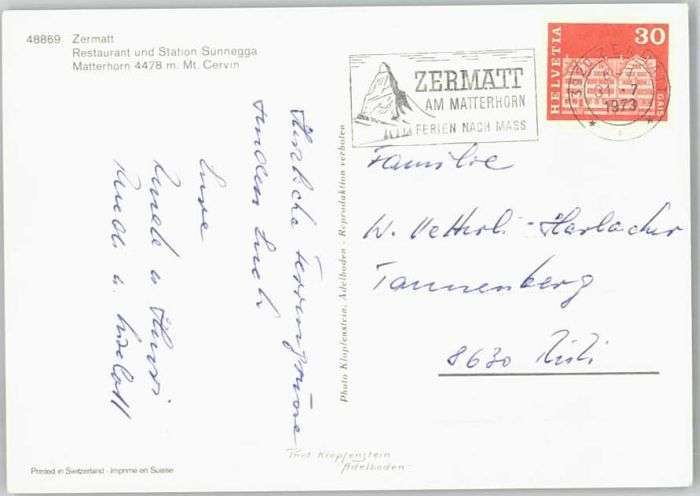 48869 Zermatt
Restaurant und Station Sunnegga
Matterhorn 4478 m. Mt. Cervin
ZERMATT
AM MATTERHORN
FERIEN NACH MASS
HELVETIA 30
3920 ZERMATT
7
1973
Herzliche Feriengrüsse
senden Euch
Ruedi u.
Photo Klopfenstein, Adelboden - Reproduktion verboten
Familie
W. Vetterli-Harlacher
Tannenberg
8630 Rüti
Phot Klopfenstein
Adelboden
Printed in Switzerland - Imprimé en Suisse